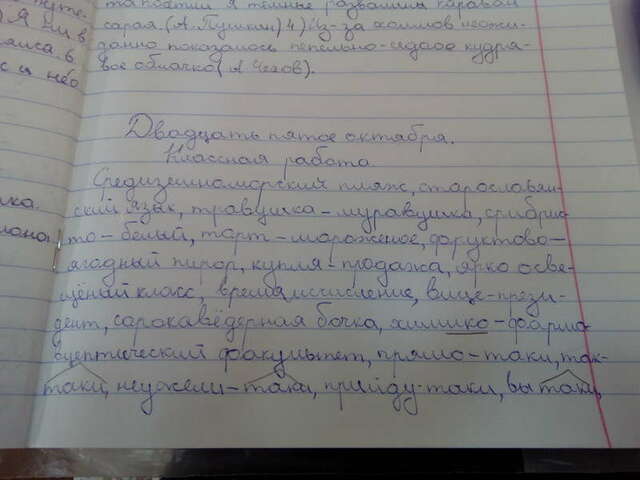 та поэтии я темные развалины
сарая. (А. Пушкин) 4) Из-за холмов неожи-
данно показалось пепельно-седое кудря-
вое облачко (А. Чехов).
Двадцать пятое октября.
Классная работа
Средиземноморский пляж, старославян-
ский язык, травушка-муравушка, срибрис
то-белый, торт-мороженое, форуктово-
ягодный пирог, купля-продажа, ярко осве-
щёный класс, времяисчисление, вице-прези-
дент, сорокаведерная бочка, химико-фарма
вцептический факультет, прямо-таки, так-
таки, неужели-таки, прийду-таки, вы таки,